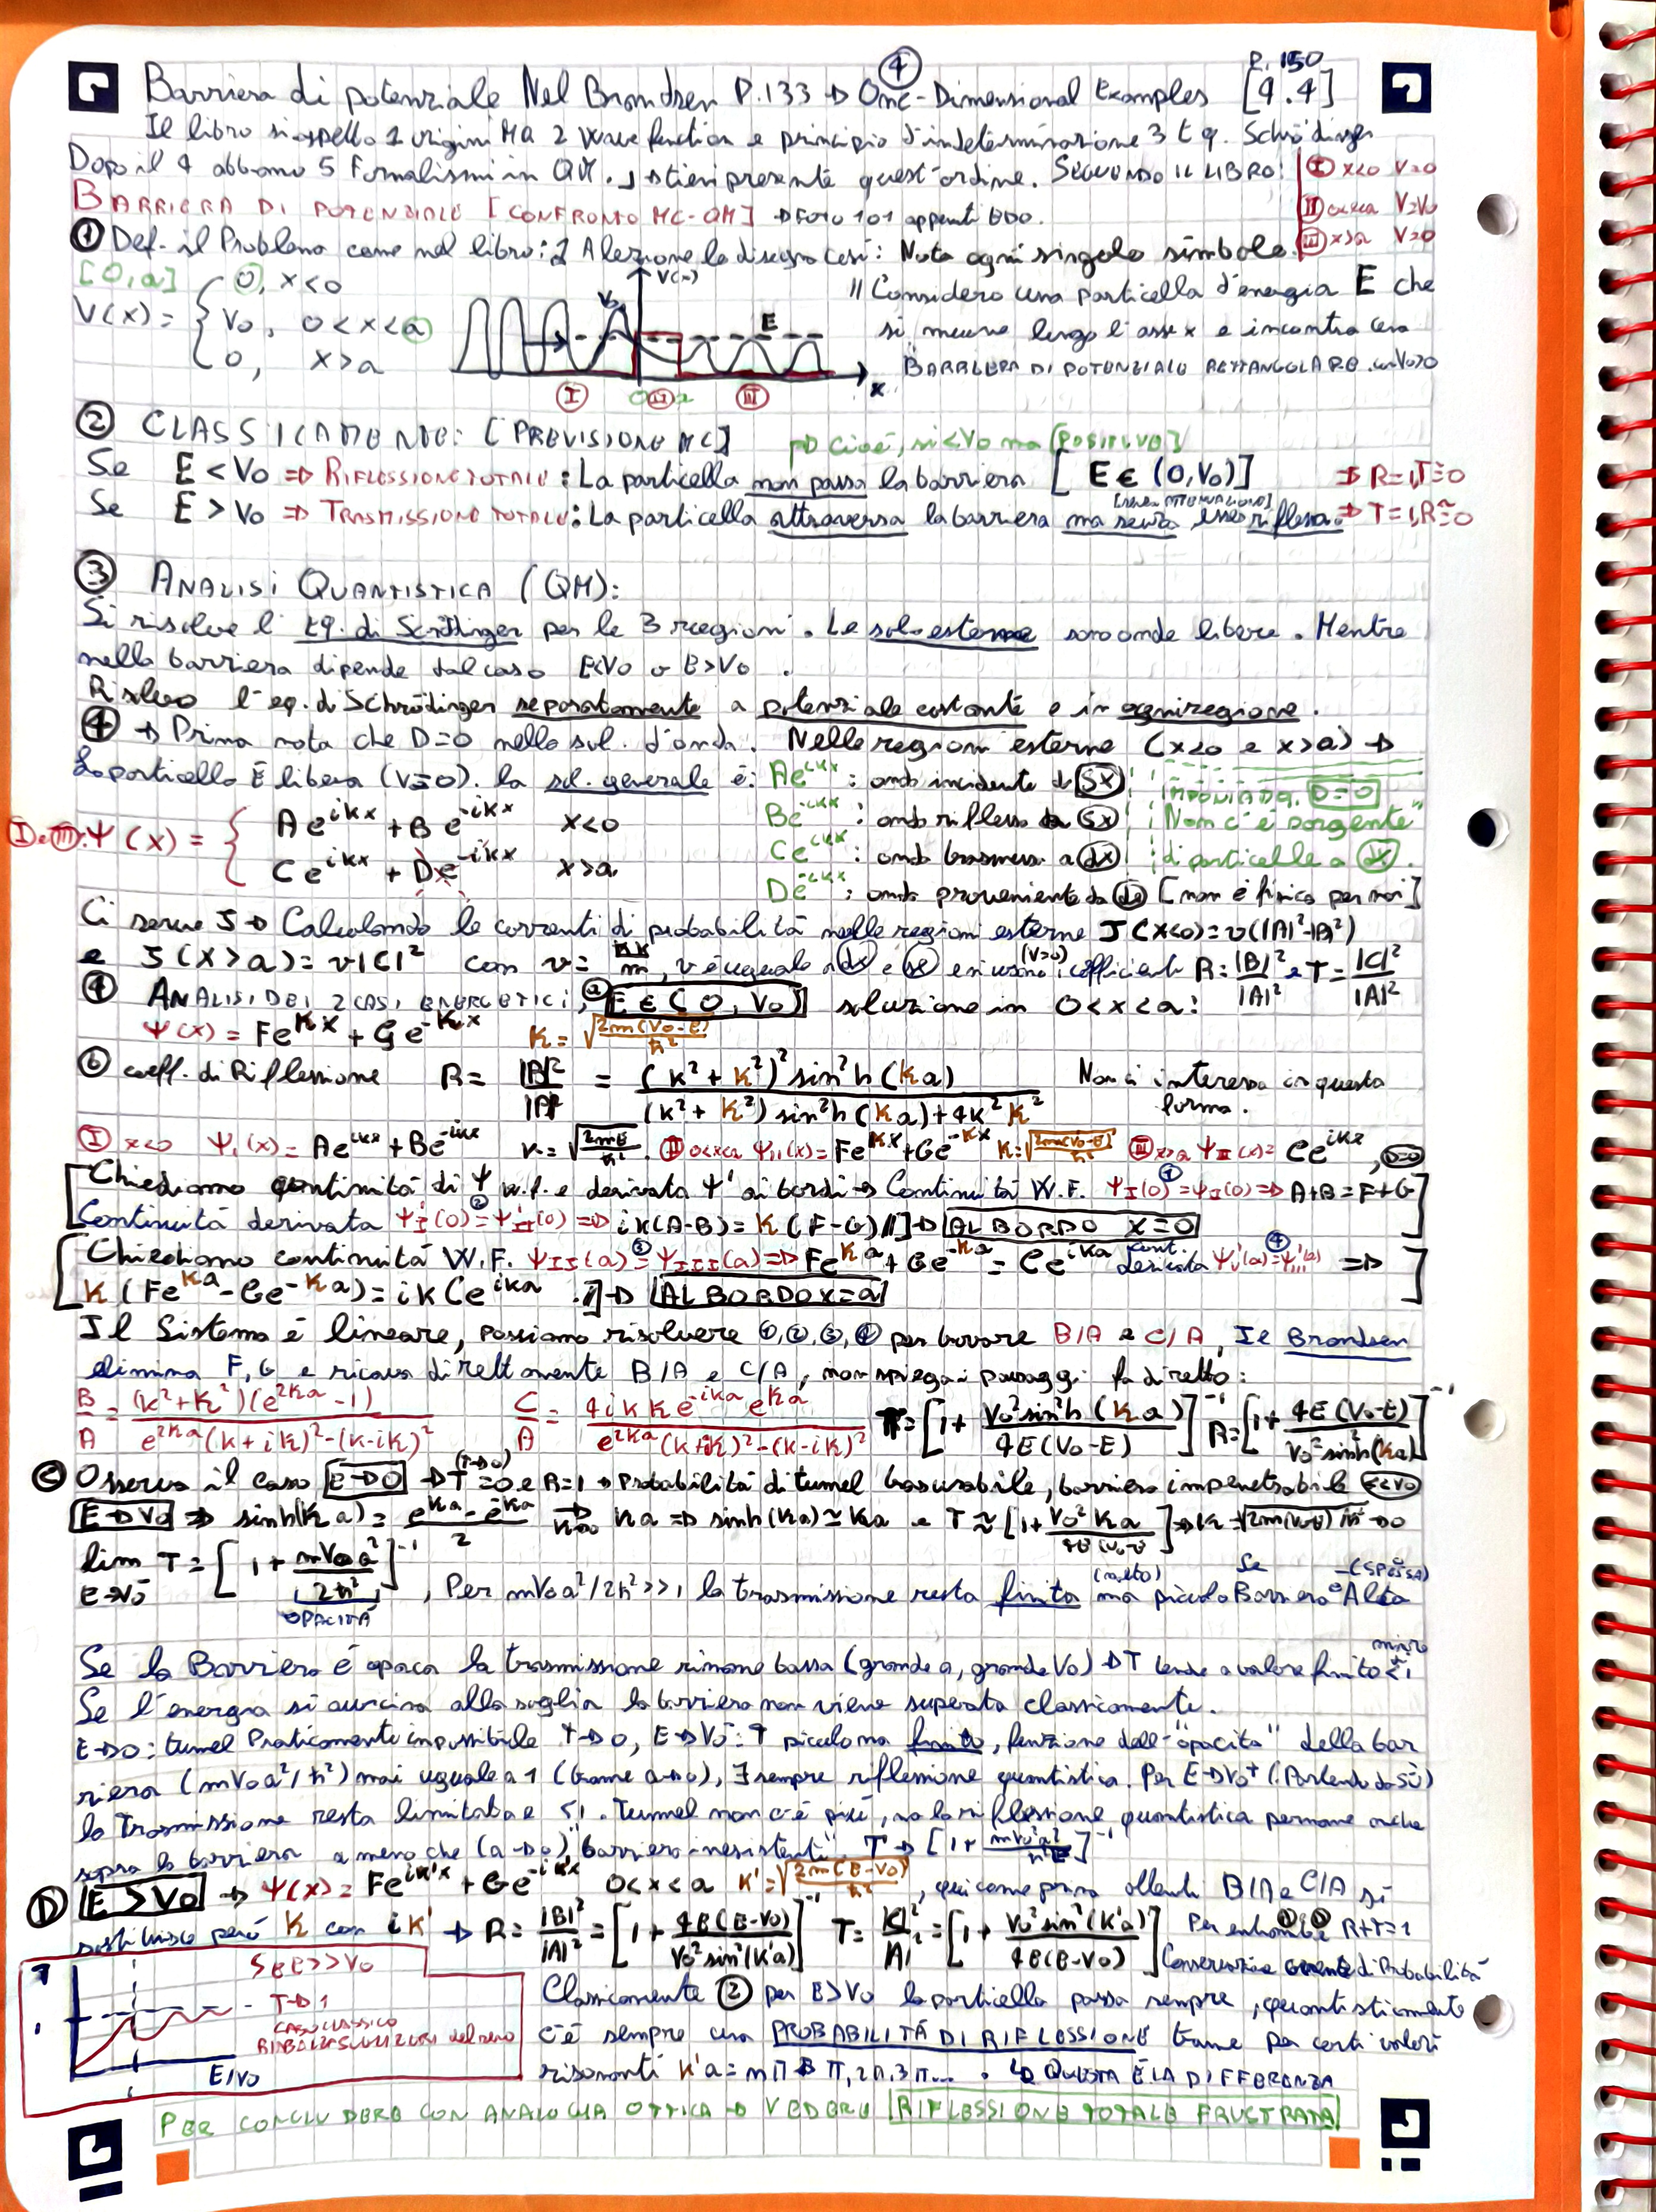 ④ P. 150
Barriera di potenziale Nel Bransden P.133 → One-Dimensional Examples [4.4]
Il libro 1 origini MQ 2 Wave function e principio d'indeterminazione 3 Eq. Schrödinger
Dopo il 4 abbiamo 5 Formalismi in QM. tieni presente quest'ordine. SECONDO IL LIBRO: Ⓘ x<0 V=0
BARRIERA DI POTENZIALE [CONFRONTO MC-QM] → FOTO 101 appunti Ⅱ 0<x<a V=V0
① Def. il Problema come nel libro: A lezione lo disegno così: Nota ogni singolo simbolo. Ⅲ x>a V=0
[0,a]
V(x) = { 0, x<0
V0, 0<x<a
0, x>a
V(x) V0 E x
Ⅰ 0 Ⅱ a Ⅲ
Considero una particella d'energia E che
si muove lungo l'asse x e incontra una
BARRIERA DI POTENZIALE RETTANGOLARE. con V0>0
② CLASSICAMENTE: [PREVISIONE MC] → Cioè, sì <V0 ma [POSITIVO]
Se E < V0 ⇒ RIFLESSIONE TOTALE: La particella non passa la barriera [E ∈ (0,V0)] ⇒ R=1, T=0
Se E > V0 ⇒ TRASMISSIONE TOTALE: La particella attraversa la barriera ma senza esser riflessa. ⇒ T=1, R≅0
③ ANALISI QUANTISTICA (QM):
Si risolve l'Eq. di Scrödinger per le 3 regioni. Le sol. esterne sono onde libere. Mentre
nella barriera dipende dal caso E<V0 o E>V0.
Risolvo l'eq. di Schrödinger separatamente a potenziale costante e in ogni regione.
④ → Prima nota che D=0 nella sol. d'onda. Nelle regioni esterne (x<0 e x>a) →
La particella È libera (V=0). la sol. generale è: Ae^{ikx} : onda incidente da SX
Be^{-ikx} : onda riflessa da SX
Ce^{ikx} : onda trasmessa a dx
De^{-ikx} : onda proveniente da dx [non è fisica per noi]
D=0 "Non c'è sorgente"
di particelle a dx.
Ⅰ e Ⅲ: Ψ(x) = { Ae^{ikx} + Be^{-ikx} x<0
Ce^{ikx} + De^{-ikx} x>a
Ci serve J → Calcolando le correnti di probabilità nelle regioni esterne J(x<0)=v(|A|²-|B|²)
e J(x>a)=v|C|² con v=ħk/m, v è uguale a dx e sx (V=0) coefficienti R=|B|²/|A|² e T=|C|²/|A|²
④ ANALISI DEI 2 CASI ENERGETICI, ⓐ E∈(0,V0) soluzione in 0<x<a:
Ψ(x) = Fe^{Kx} + Ge^{-Kx} K=√(2m(V0-E)/ħ²)
ⓑ coeff. di Riflessione R = |B|²/|A|² = (k²+K²)² sin²h(Ka) / (k²+K²) sin²h(Ka)+4k²K² Non ci interessa in questa
forma.
Ⅰ x<0 Ψ_I(x)=Ae^{ikx}+Be^{-ikx} k=√(2mE/ħ²). Ⅱ 0<x<a Ψ_II(x)=Fe^{Kx}+Ge^{-Kx} K=√(2m(V0-E)/ħ²) Ⅲ x>a Ψ_III(x)=Ce^{ikx}, D=0
[Chiediamo continuità di Ψ w.f. e derivata Ψ' ai bordi → Continuità W.F. Ψ_I(0) =① Ψ_II(0) ⇒ A+B=F+G
Continuità derivata Ψ'_I(0) =② Ψ'_II(0) ⇒ ik(A-B)=K(F-G)//] → AL BORDO x=0
[Chiediamo continuità W.F. Ψ_II(a) =③ Ψ_III(a) ⇒ Fe^{Ka}+Ge^{-Ka}=Ce^{ika} cont. derivata Ψ'_II(a) =④ Ψ'_III(a) ⇒
K(Fe^{Ka}-Ge^{-Ka})=ikCe^{ika} .//] → AL BORDO x=a
Il Sistema è lineare, possiamo risolvere ①,②,③,④ per trovare B/A e C/A, Il Bransden
elimina F,G e ricava direttamente B/A e C/A, non spiega i passaggi fa diretto:
B/A = (k²+K²)(e^{2Ka}-1) / e^{2Ka}(k+iK)²-(k-iK)² C/A = 4ikKe^{-ika}e^{Ka} / e^{2Ka}(k+iK)²-(k-iK)² T=[1+ V0² sin²h(Ka) / 4E(V0-E)]^{-1} R=[1+ 4E(V0-E) / V0² sinh²(Ka)]^{-1}
ⓒ Osserva il caso E→0 → T=0 (T→0) e R=1 → Probabilità di tunnel trascurabile, barriera impenetrabile E<V0
E→V0 ⇒ sinh(Ka)= (e^{Ka}-e^{-Ka})/2 → Ka ⇒ sinh(Ka)≃Ka e T≈[1+ V0² Ka / 4E(V0-E)] ⇒ K=√2m(V0-E)/ħ² →0
lim E→V0⁻ T = [1+ mV0a²/2ħ²]^{-1} OPACITÀ, Per mV0a²/2ħ²>>1 la trasmissione resta finita ma (molto) piccola Se Barriera è Alta (SPESSA)
Se la Barriera è opaca la trasmissione rimane bassa (grande a, grande V0) → T tende a valore finito <1 minore
Se l'energia si avvicina alla soglia la barriera non viene superata classicamente.
E→0: tunnel Praticamente impossibile T→0, E→V0⁻: T piccolo ma finito, funzione dell'"opacità" della bar
riera (mV0a²/ħ²) mai uguale a 1 (tranne a→0), ∃ sempre riflessione quantistica. Per E→V0⁺ (Partendo da SÙ)
la Trasmissione resta limitata e ≤1. Tunnel non c'è più, ma la riflessione quantistica permane anche
sopra la barriera a meno che (a→0) "barriera inesistente". T→[1+ mV0a²/ħ²]^{-1}
Ⓓ E>V0 → Ψ(x)=Fe^{iK'x}+Ge^{-iK'x} 0<x<a K'=√(2m(E-V0)/ħ²), qui come prima ottenti B/A e C/A si
sostituisce però K con iK' → R=|B|²/|A|²=[1+ 4E(E-V0) / V0² sin²(K'a)]^{-1} T=|C|²/|A|²=[1+ V0² sin²(K'a) / 4E(E-V0)]^{-1} Per entrambe R+T=1
Conservazione di Probabilità
T 1 SE E>>V0
T→1
CASO CLASSICO
E/V0
Classicamente ② per E>V0 la particella passa sempre, quantisticamente
c'è sempre una PROBABILITÀ DI RIFLESSIONE tranne per certi valori
risonanti K'a=nπ π, 2π, 3π.... ↳ QUESTA È LA DIFFERENZA
PER CONCLUDERE CON ANALOGIA OTTICA → VEDERE RIFLESSIONE TOTALE FRUSTRATA